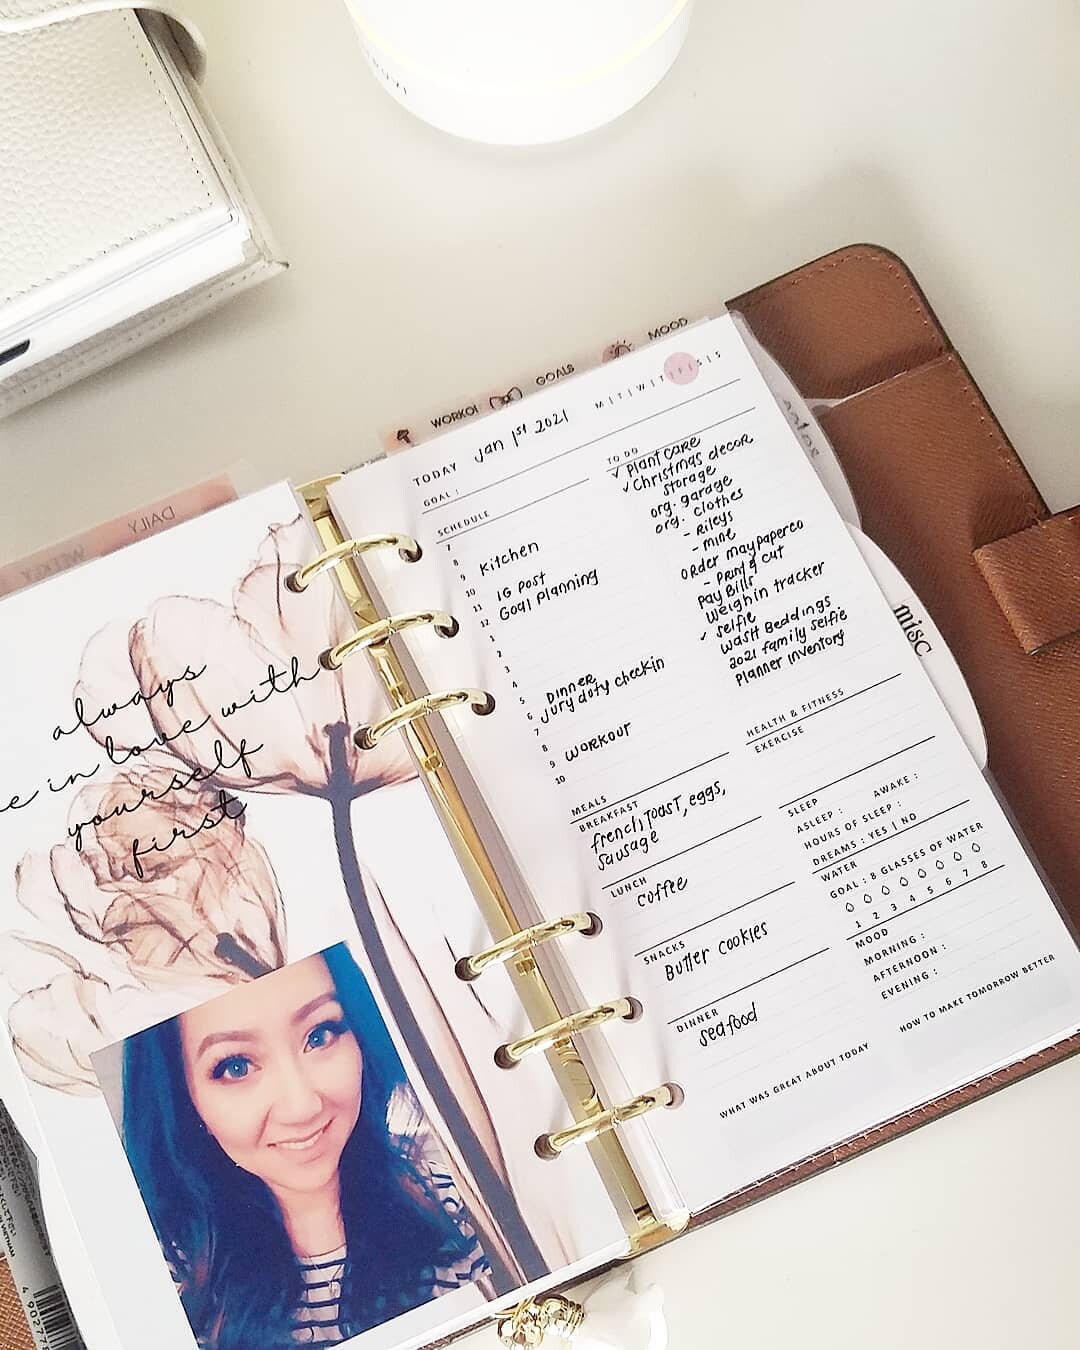 DAILY
WEEKLY
always
in love with
yourself
first
WORKOUT
GOALS
MOOD
notes
misc
TODAY Jan 1st 2021
M | T | W | T | F | S | S
GOAL :
SCHEDULE
7
8 Kitchen
9
10 IG Post
11 Goal Planning
12
1
2
3
4
5 Dinner
6 Jury duty checkin
7
8 Workout
9
10
TO DO
✓ Plant care
✓ Christmas decor
storage
org. garage
org. clothes
- Rileys
- mine
order maypaperco
- Print & cut
Pay Bills
Weigh in tracker
✓ Selfie
Wash Beddings
2021 family selfie
Planner Inventory
MEALS
BREAKFAST
french toast, eggs,
sausage
LUNCH
coffee
SNACKS
Butter cookies
DINNER
seafood
HEALTH & FITNESS
EXERCISE
SLEEP
ASLEEP : AWAKE :
HOURS OF SLEEP :
DREAMS : YES | NO
WATER
GOAL : 8 GLASSES OF WATER
1 2 3 4 5 6 7 8
MOOD
MORNING :
AFTERNOON :
EVENING :
WHAT WAS GREAT ABOUT TODAY
HOW TO MAKE TOMORROW BETTER
VIETNAM